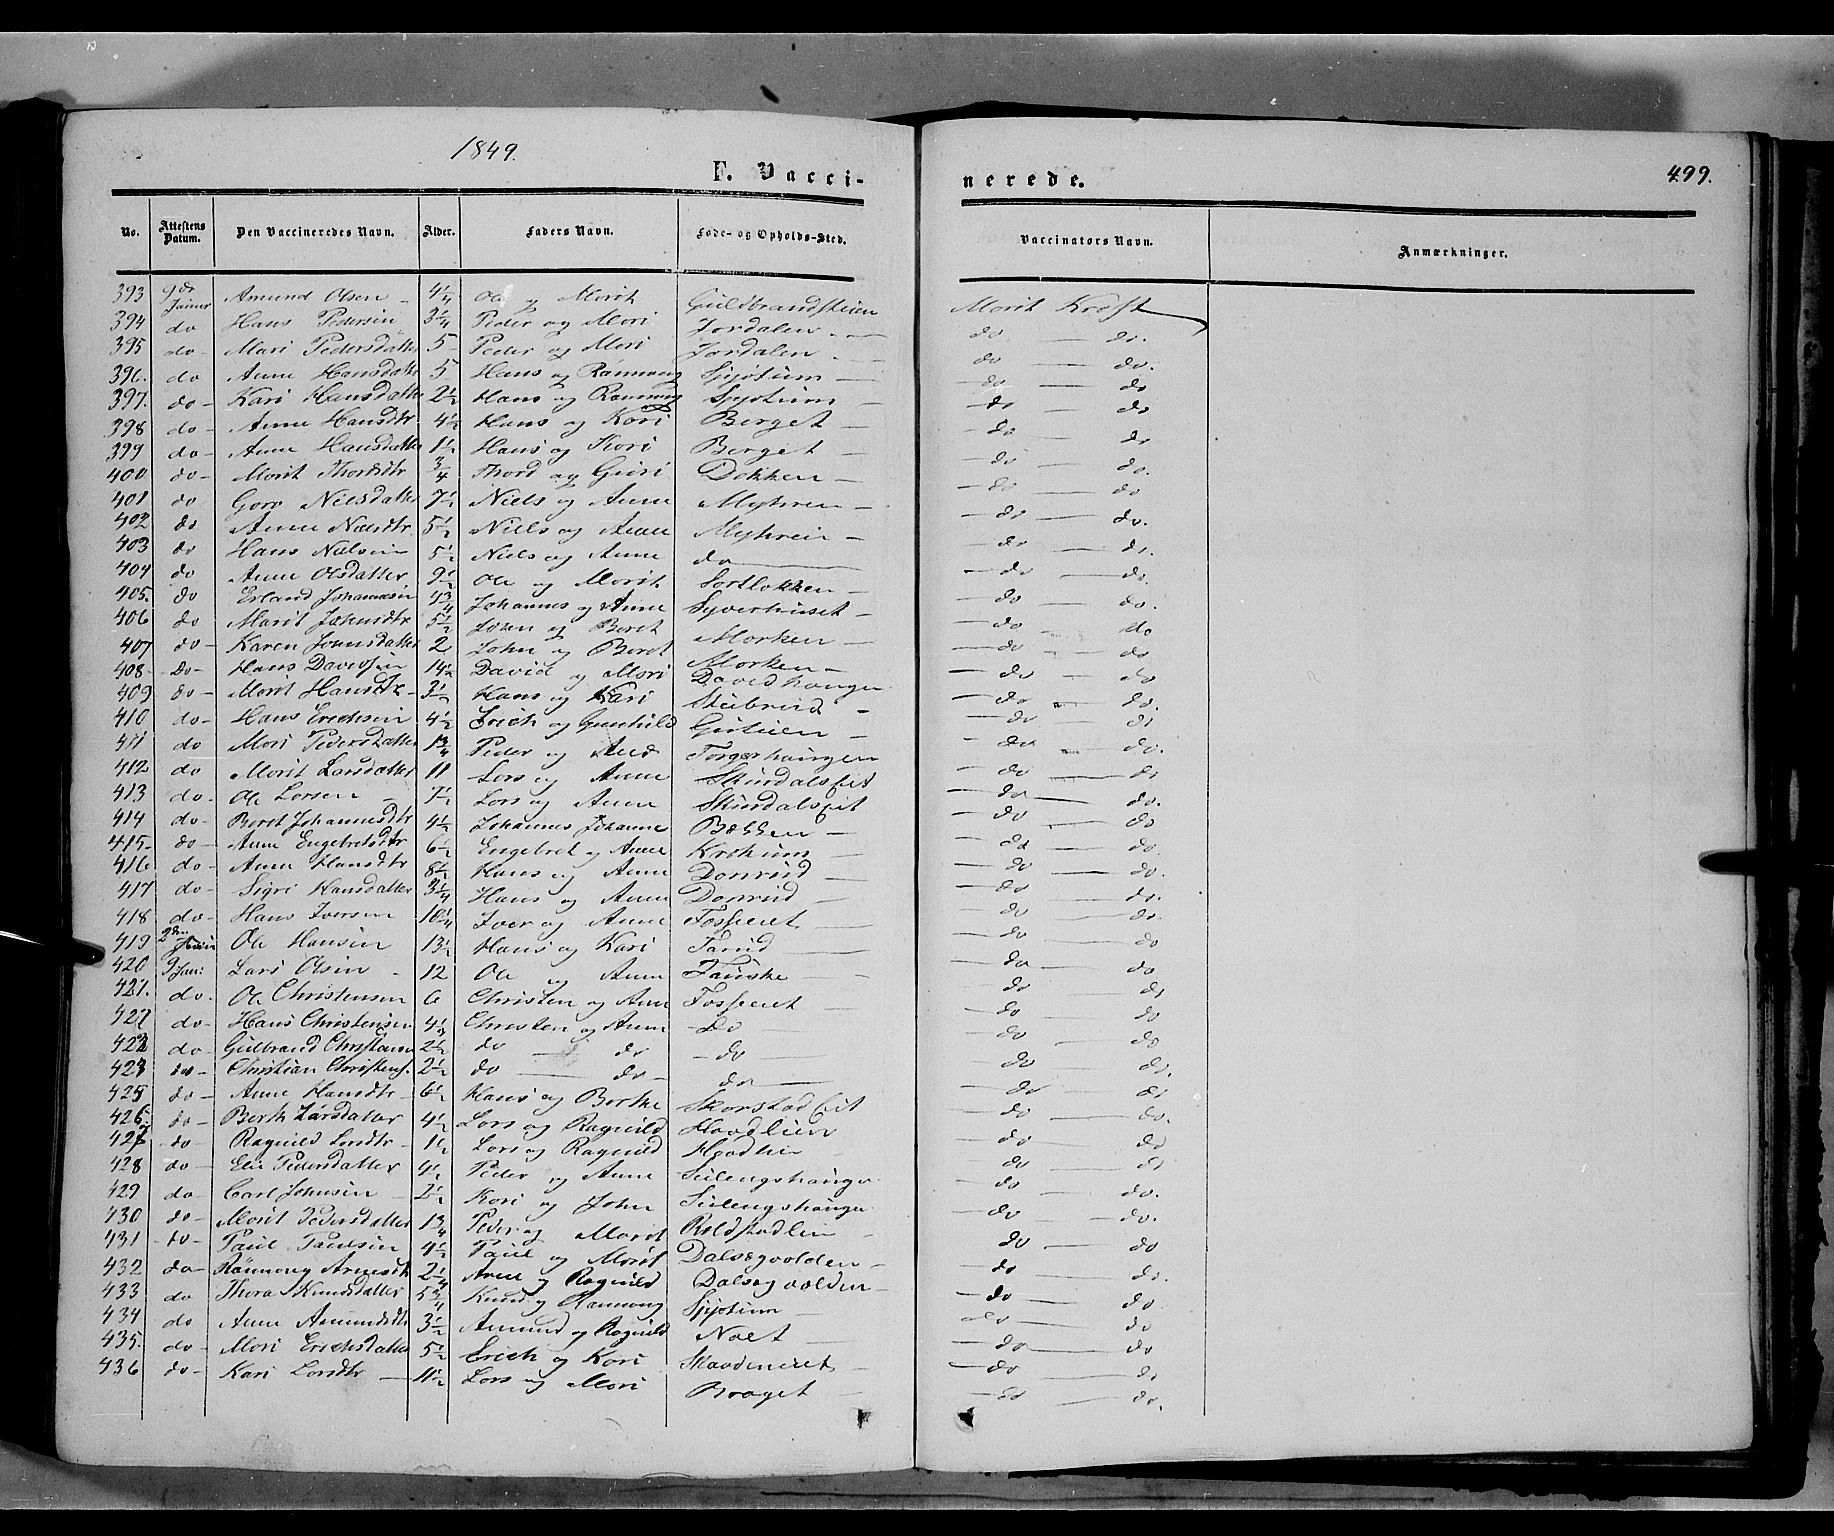 1849.
F. Vacci-
nerede.
499.
No. Attestens Datum. Den Vaccineredes Navn. Alder. Faders Navn. Føde- og Opholds-Sted. Vaccinators Navn. Anmærkninger.
393 9de Amund Olsen - 4 1/4 Ole og Marit Guldbrandsteien Marit Kroft
394 do Hans Pedersen 3 1/4 Peder og Mari Jordalen - do - do.
395 do - Mari Pedersdatter 5 - Peder og Mari Jordalen - do - do.
396. do Anne Hansdatter 5 Hans og Rannoug - do - do
397. do - Kari Hansdatter 2 1/2 Hans og Rannoug - do - do
398 do - Anne Hansdtr. 4 1/2 Hans og Kari Berget - do - do
399 do - Anne Hansdatter 1 1/2 Hans og Kari Berget - do - do.
400 do - Marit Thordsdtr 3/4 Thord og Guri Dokken - do - do
401 do Goro Nielsdatter 7 1/2 Niels og Anne Myhren - do - do.
402 do Anne Nielsdtr. 5 1/2 Niels og Anne Myhren - do - do.
403 do Hans Nielsen 5 1/2 Niels og Anne do - do - do.
404 do Anne Olsdatter 9 1/2 Ole og Marit Sortlokken - do - do.
405. do Erland Johannesen 4 3/4 Johannes og Anne Syverhuset - do - do
406 do Marit Johnsdtr 5 1/2 John og Beret Morken - do - do
407 do - Karen Johnsdatter 2 John og Beret Morken - do - do
408 - do - Hans Davidsen 14 1/2 David og Mari - do - do.
409 do - Marit Hansdtr - 3 1/2 Hans og Kari - do - do
410 do - Hans Erichsen 4 1/2 Erich og Gunhild - do - do.
411 do Mari Pedersdatter 1 3/4 Peder og Anne - do - do
412 do Marit Larsdatter 11 Lars og Anne - do - do.
413 do - Ole Larsen - 7 1/2 Lars og Anne - do - do
414 do - Beret Johannesdtr 4 1/2 Johannes Johanne Bækken - do - do.
415. do - Anne Engebretsdtr 6 1/2 Engebret og Anne - do - do.
416 do - Anne Hansdtr 8 1/2 Hans og Anne Donrud - do - do.
417 do - Sigri Hansdatter 3 1/4 Hans og Anne Donrud - do - do.
418 do - Hans Iversen 10 1/4 Iver og Anne - do - do
419 Ole Hansen 13 1/2 Hans og Kari - do - do
420 9 Jan: Lars Olsen - 12 Ole og Anne Tauske - do - do
421. do - Ole Christensen 6 Christen og Anne - do - do
422 do - Hans Christensen 4 1/2 Christen og Anne - do - do
423 do - Gulbrand Christensen 2 1/2 do - do - do - do - do.
423 do - Christian Christens. 2 1/2 do - do - do - do - do
425 do - Anne Hansdtr - 6 1/2 Hans og Berthe - do - do.
426 do - Berth Larsdatter 4 1/2 Lars og Ragnild - do - do
427 do - Ragnild Larsdtr - 1 1/2 Lars og Ragnild - do - do
428 do - Elie Pedersdatter 4 1/2 Peder og Anne - do - do.
429 do - Carl Johnsen - 2 1/2 Kari og John - do - do.
430 do - Marit Pedersdatter 1 3/4 Peder og Marit - do - do
431 do - Paul Paulsen 4 1/2 Paul og Marit - do - do.
432 do - Rannoug Arnesdtr 2 1/4 Arne og Ragnild - do - do
433 do Thora Knudsdatter 5 3/4 Knud og Rannoug - do - do
434 do Anne Amundsdtr 3 1/2 Amund og Ragnild - do - do
435. do - Mari Erichsdatter 5 1/2 Erich og Kari - do - do
436 do - Kari Larsdtr - 11 1/2 Lars og Mari Braget - do - do.